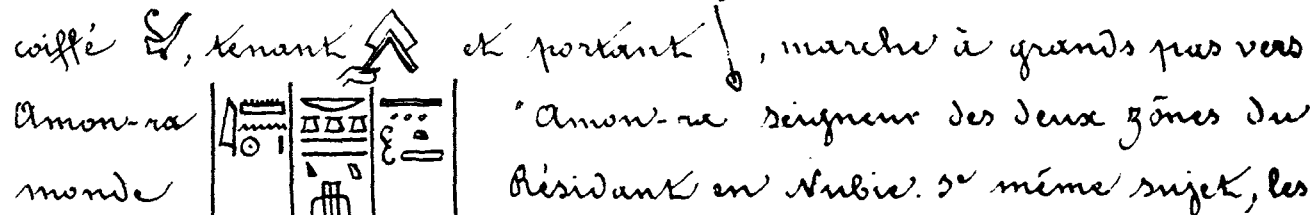 coiffé, tenant et portant, marche à grands pas vers
Amon-ra "Amon-ra seigneur des deux zônes du
monde Résidant en Nubie. 3º même sujet, les